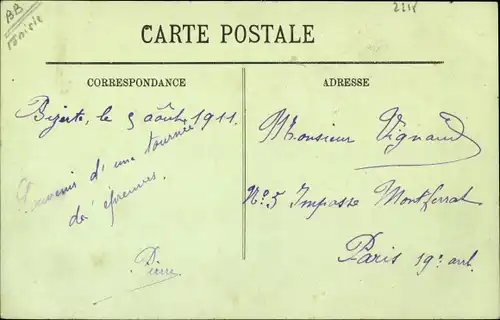 BB
2218
CARTE POSTALE
CORRESPONDANCE
Bizerte, le 5 août 1911.
Souvenir d'une tournée
d'épreuves.
Pierre
ADRESSE
Monsieur Vignaud
No 5 Impasse Montferrat
Paris 19e arrt.